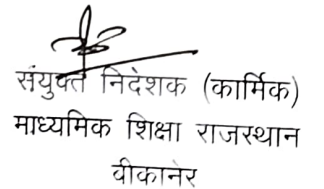 संयुक्त निदेशक (कार्मिक)
माध्यमिक शिक्षा राजस्थान
वीकानेर